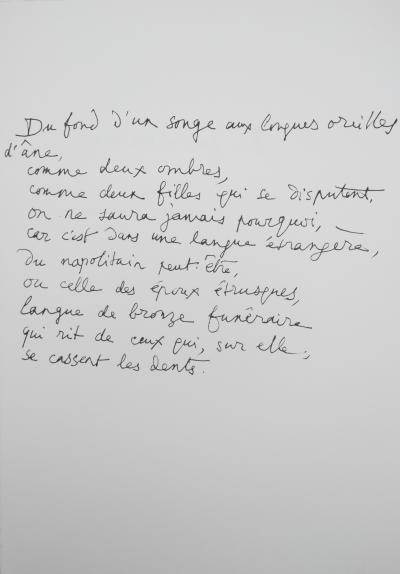 Du fond d'un songe aux longues oreilles
d'âne,
comme deux ombres,
comme deux filles qui se disputent,
on ne saura jamais pourquoi, —
car c'est dans une langue étrangère,
du napolitain peut-être,
ou celle des époux étrusques,
langue de bronze funéraire
qui rit de ceux qui, sur elle,
se cassent les dents.